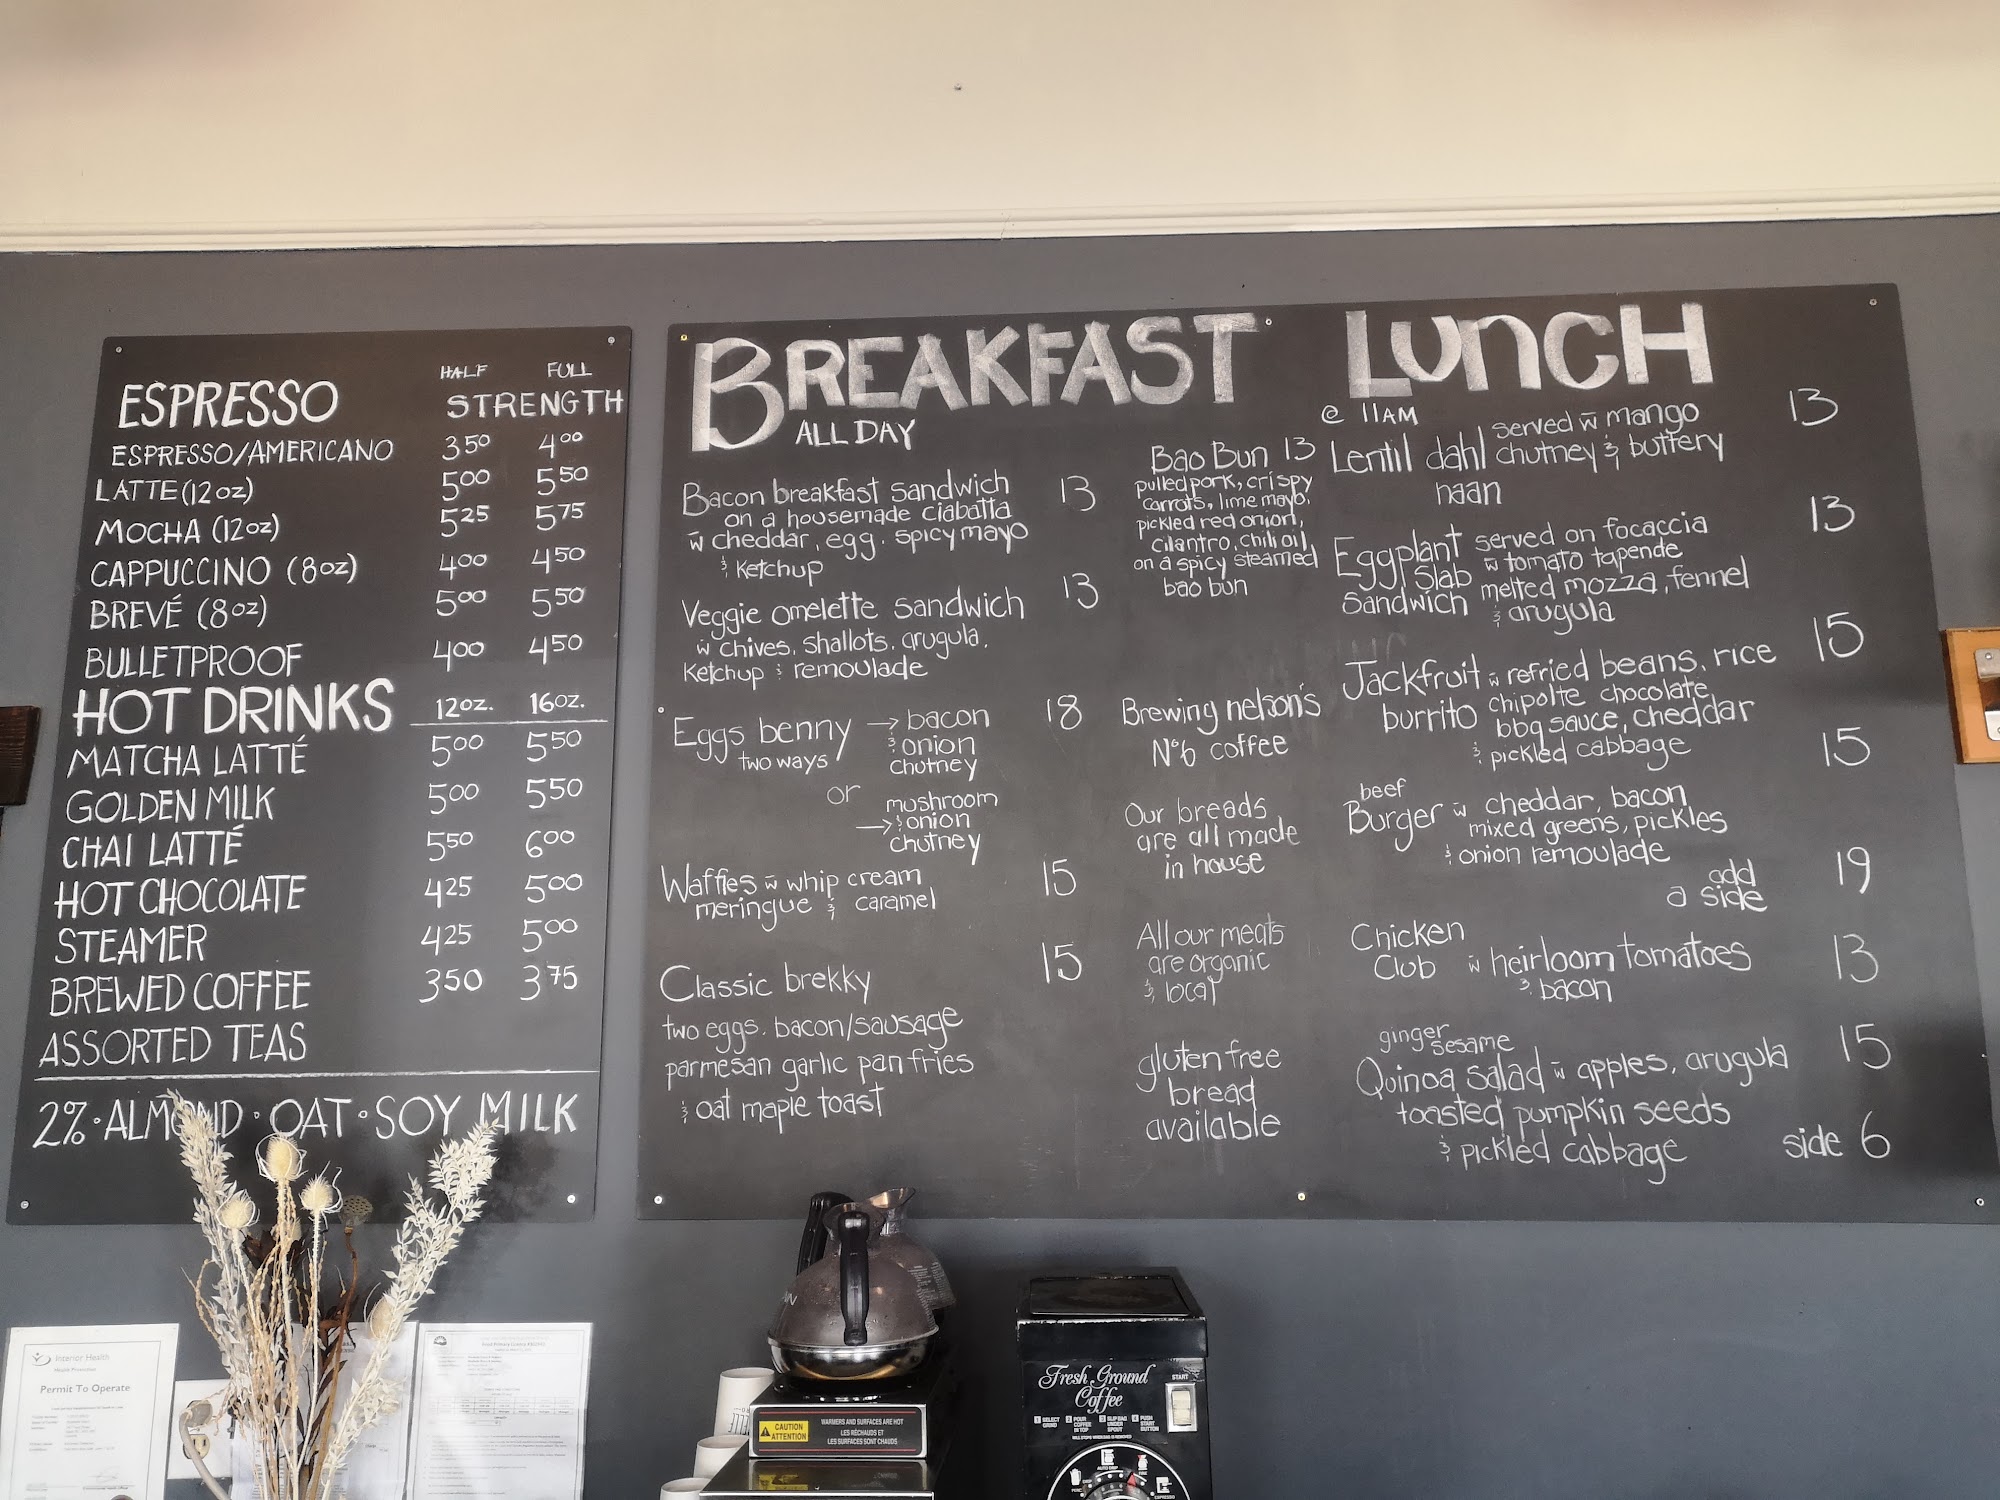 ESPRESSO
HALF FULL
STRENGTH
ESPRESSO/AMERICANO 3.50 4.00
LATTE (12 oz) 5.00 5.50
MOCHA (12oz) 5.25 5.75
CAPPUCCINO (8oz) 4.00 4.50
BREVÉ (8oz) 5.00 5.50
BULLETPROOF 4.00 4.50
HOT DRINKS 12oz. 16oz.
MATCHA LATTÉ 5.00 5.50
GOLDEN MILK 5.00 5.50
CHAI LATTÉ 5.50 6.00
HOT CHOCOLATE 4.25 5.00
STEAMER 4.25 5.00
BREWED COFFEE 3.50 3.75
ASSORTED TEAS
2% · ALMOND · OAT · SOY MILK
BREAKFAST
ALL DAY
Bacon breakfast sandwich 13
on a housemade ciabatta
w cheddar, egg, spicy mayo
& ketchup
Veggie omelette sandwich 13
w chives, shallots, arugula,
ketchup & remoulade
Eggs benny → bacon 18
two ways & onion
chutney
or mushroom
→ & onion
chutney
Waffles w whip cream 15
meringue & caramel
Classic brekky 15
two eggs, bacon/sausage
parmesan garlic pan fries
& oat maple toast
Bao Bun 13
pulled pork, crispy
carrots, lime mayo,
pickled red onion,
cilantro, chili oil
on a spicy steamed
bao bun
Brewing nelson's
Nº6 coffee
Our breads
are all made
in house
All our meats
are organic
& local
gluten free
bread
available
LUNCH
@ 11AM
Lentil dahl served w mango 13
chutney & buttery
naan
Eggplant served on focaccia 13
Slab w tomato tapende
Sandwich melted mozza, fennel
& arugula
Jackfruit w refried beans, rice 15
burrito chipolte chocolate
bbq sauce, cheddar
& pickled cabbage
15
beef
Burger w cheddar, bacon
mixed greens, pickles
& onion remoulade
add 19
a side
Chicken
Club w heirloom tomatoes 13
& bacon
ginger
sesame
Quinoa salad w apples, arugula 15
toasted pumpkin seeds
& pickled cabbage
side 6
Interior Health
Health Protection
Permit To Operate
CAUTION
ATTENTION
WARMERS AND SURFACES ARE HOT
LES RÉCHAUDS ET
LES SURFACES SONT CHAUDS
Fresh Ground
Coffee
START
1 SELECT GRIND 2 POUR COFFEE IN TOP 3 SLIP BAG UNDER SPOUT 4 PUSH START BUTTON
AUTO DRIP
ESPRESSO